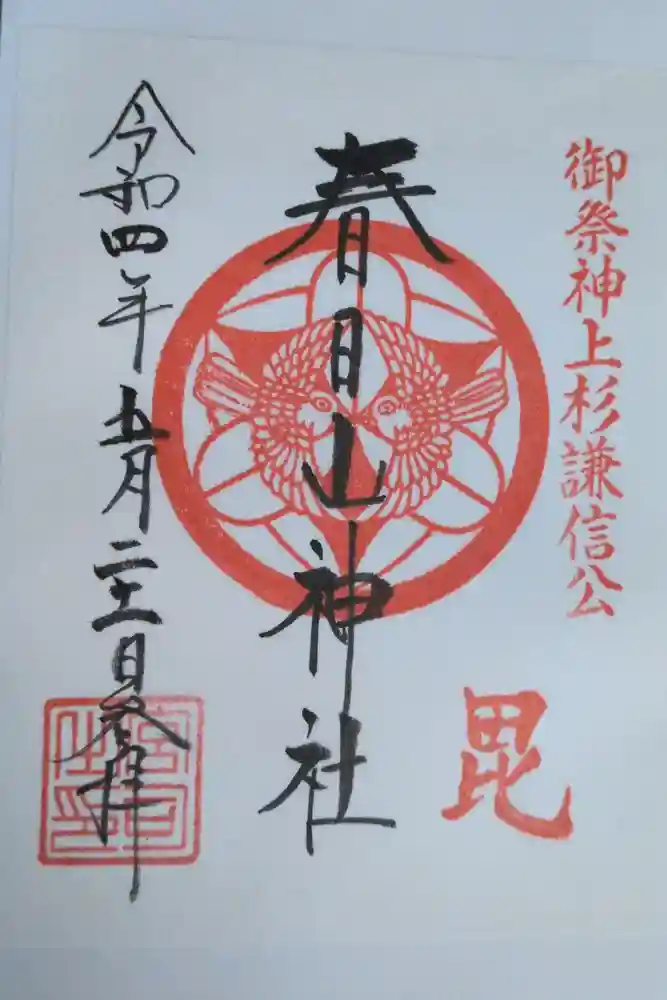 御祭神上杉謙信公
毘
春日山神社
令和四年五月二十一日参拝
宮司
之印